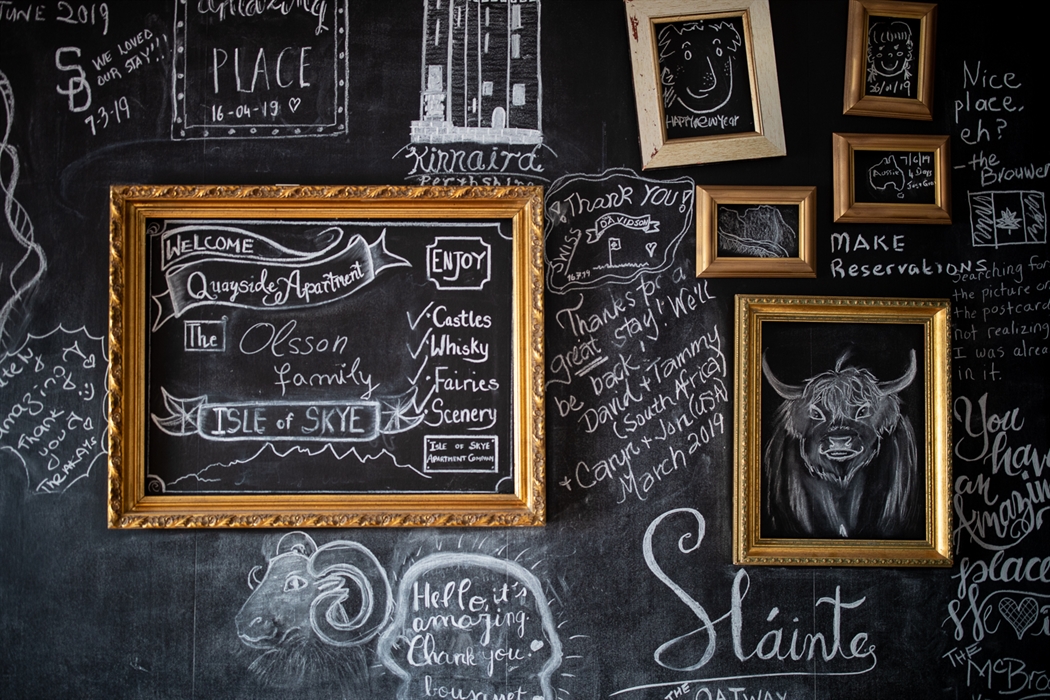 JUNE 2019
SD
WE LOVED
OUR STAY!!!
7-3-19
amazing
PLACE
16-04-19
Kinnaird
Perthshire
HAPPY NEW YEAR
26/01/19
Aussie
7/6/19
4 Days
Nice
place,
eh?
-the
Brouwer
MAKE
Reservations
Searching for
the picture on
the postcard
not realizing
I was alrea
in it.
THANK YOU!
SWISS
DAVIDSON
16.3.19
Thanks for a
great stay! We'll
be back!
David + Tammy
(South Africa)
+ Caryn + Jon (USA)
March 2019
WELCOME
Quayside Apartment
The
Olsson
family
ISLE of SKYE
ENJOY
Castles
Whisky
Fairies
Scenery
ISLE OF SKYE
APARTMENT COMPANY
amazing
Thank
you
THE AKAYS
You
have
an
amazing
place
We
THE
McBro
Hello, it's
amazing.
Thank you
Sláinte
THE OATWAY